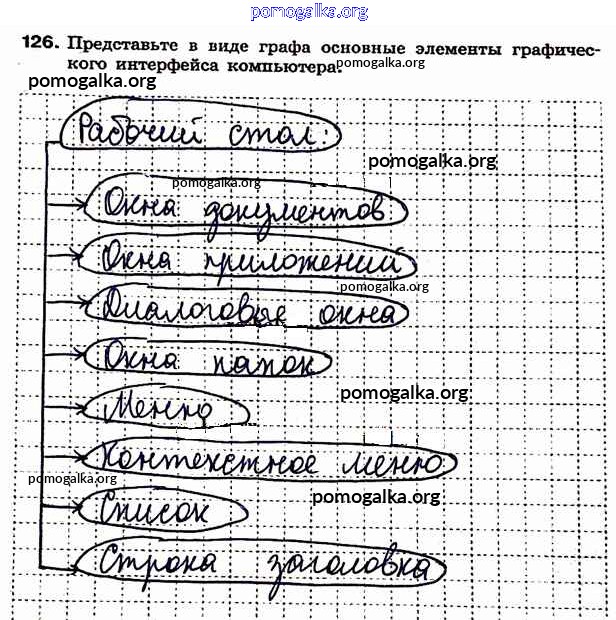 pomogalka.org
126. Представьте в виде графа основные элементы графичес-
кого интерфейса компьютера. pomogalka.org
pomogalka.org
Рабочий стол:
pomogalka.org
pomogalka.org
Окна документов
Окна приложений
pomogalka.org
Диалоговые окна
Окна папок
pomogalka.org
Меню
Контекстное меню
pomogalka.org
pomogalka.org
Список
Строка заголовка